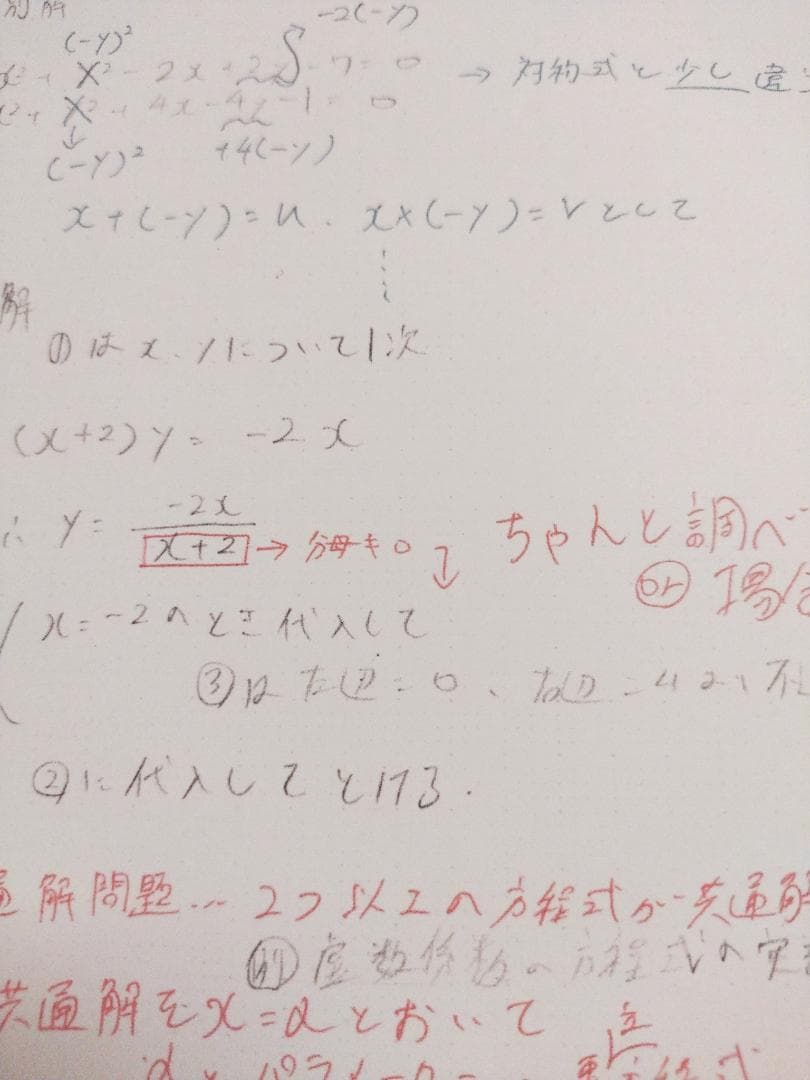 別解
(-y)² -2(-y)
x²+ y² - 2x + 2y - 7 = 0 → 対称式と少し違
x²+ y² + 4x - 4y - 1 = 0
(-y)² +4(-y)
x+(-y)=u. x×(-y)=vとして
解
①はx.yについて1次
(x+2)y = -2x
∴ y = -2x / x+2 → 分母≠0 ちゃんと調べ
or 場合
x=-2のとき代入して
③は左辺=0、右辺=4より不
②に代入してとける.
通解問題… 2つ以上の方程式が共通解
例 虚数係数の方程式の実
共通解をx=αとおいて